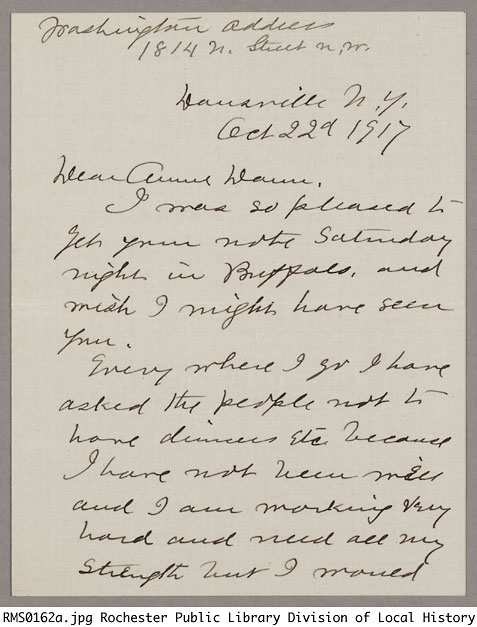 Washington address
1814 N. Street N.W.
Dansville N.Y.
Oct 22d 1917
Dear Annie Dann,
I was so pleased to
get your note Saturday
night in Buffalo, and
wish I might have seen
you.
Every where I go I have
asked the people not to
have dinners etc because
I have not been well
and I am working very
hard and need all my
strength but I would
RMS0162a.jpg Rochester Public Library Division of Local History